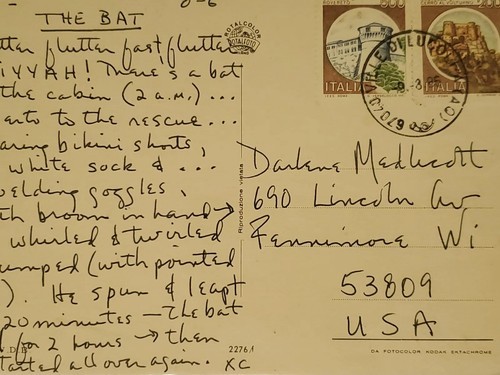 THE BAT
tter flutter fast, flutter
IYYYAH! There's a bat
the cabin (2 a.m.) ...
ents to the rescue ...
aring bikini shorts,
white sock & ...
elding goggles,
th broom in hand →
whirled & twirled
umped (with pointed
). He spun & leapt
20 minutes — the bat
for 2 hours → then
tarted all over again. XC
ROTALCOLOR
ROTALFOTO
Riproduzione vietata
22761
500
200
ITALIA
ITALIA
67040
Darlene Medlicott
690 Lincoln Av
Fennimore Wi
53809
USA
DA FOTOCOLOR KODAK EKTACHROME